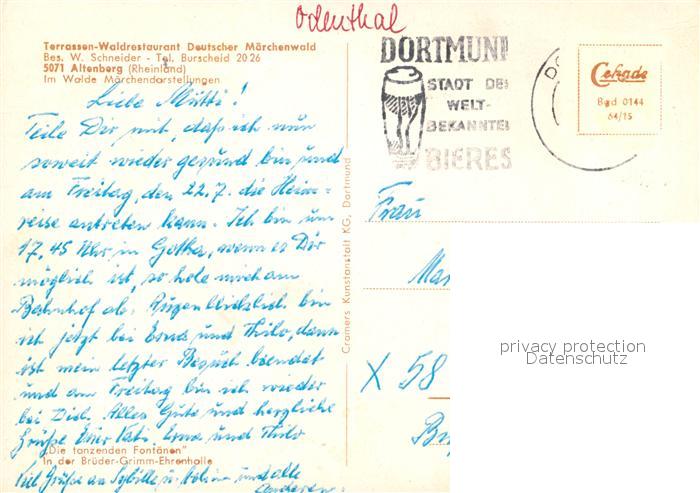 Odenthal
Terrassen-Waldrestaurant Deutscher Märchenwald
Bes. W. Schneider - Tel. Burscheid 2026
5071 Altenberg (Rheinland)
Im Walde Märchendarstellungen
Liebe Mutti!
Teile Dir mit, daß ich nun
soweit wieder gesund bin und
am Freitag, den 22.7. die Heim-
reise antreten kann. Ich bin um
17.45 Uhr in Gotha, wenn es Dir
möglich ist, so hole mich am
Bahnhof ab. Augenblicklich bin
ich jetzt bei Erna und Thilo, dann
ist mein letzter Besuch beendet
und am Freitag bin ich wieder
bei Dir. Alles Gute und herzliche
Grüße Euer Vati. Erna und Thilo
"Die tanzenden Fontänen"
In der Brüder-Grimm-Ehrenhalle
Viel Grüße an Sybille u. und alle
anderen.
Cramers Kunstanstalt KG, Dortmund
DORTMUND
STADT DER
WELT-
BEKANNTEN
BIERES
DO
Cekade
Bad 0144
64/15
Frau
Mar
X 58
privacy protection
Datenschutz